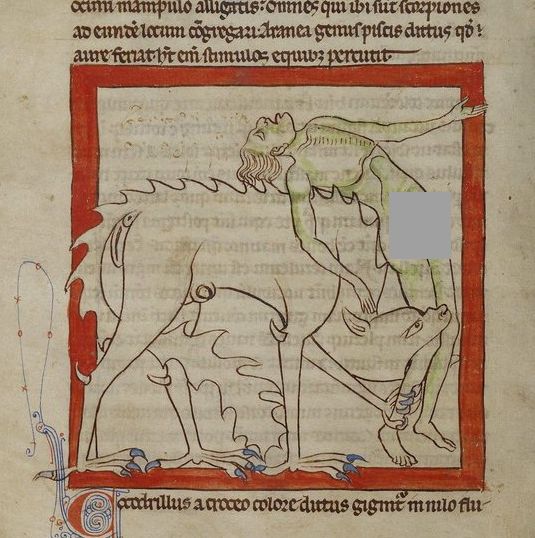 ocini manipulo alligatis: omnes qui ibi sut scorpiones
ad eunde locum cōgregari. Aranea genus piscis dictus qđ
aure feriat. ht em stimulos equibz percutit
Cocodrillus a croceo colore dictus gignit in nilo flu